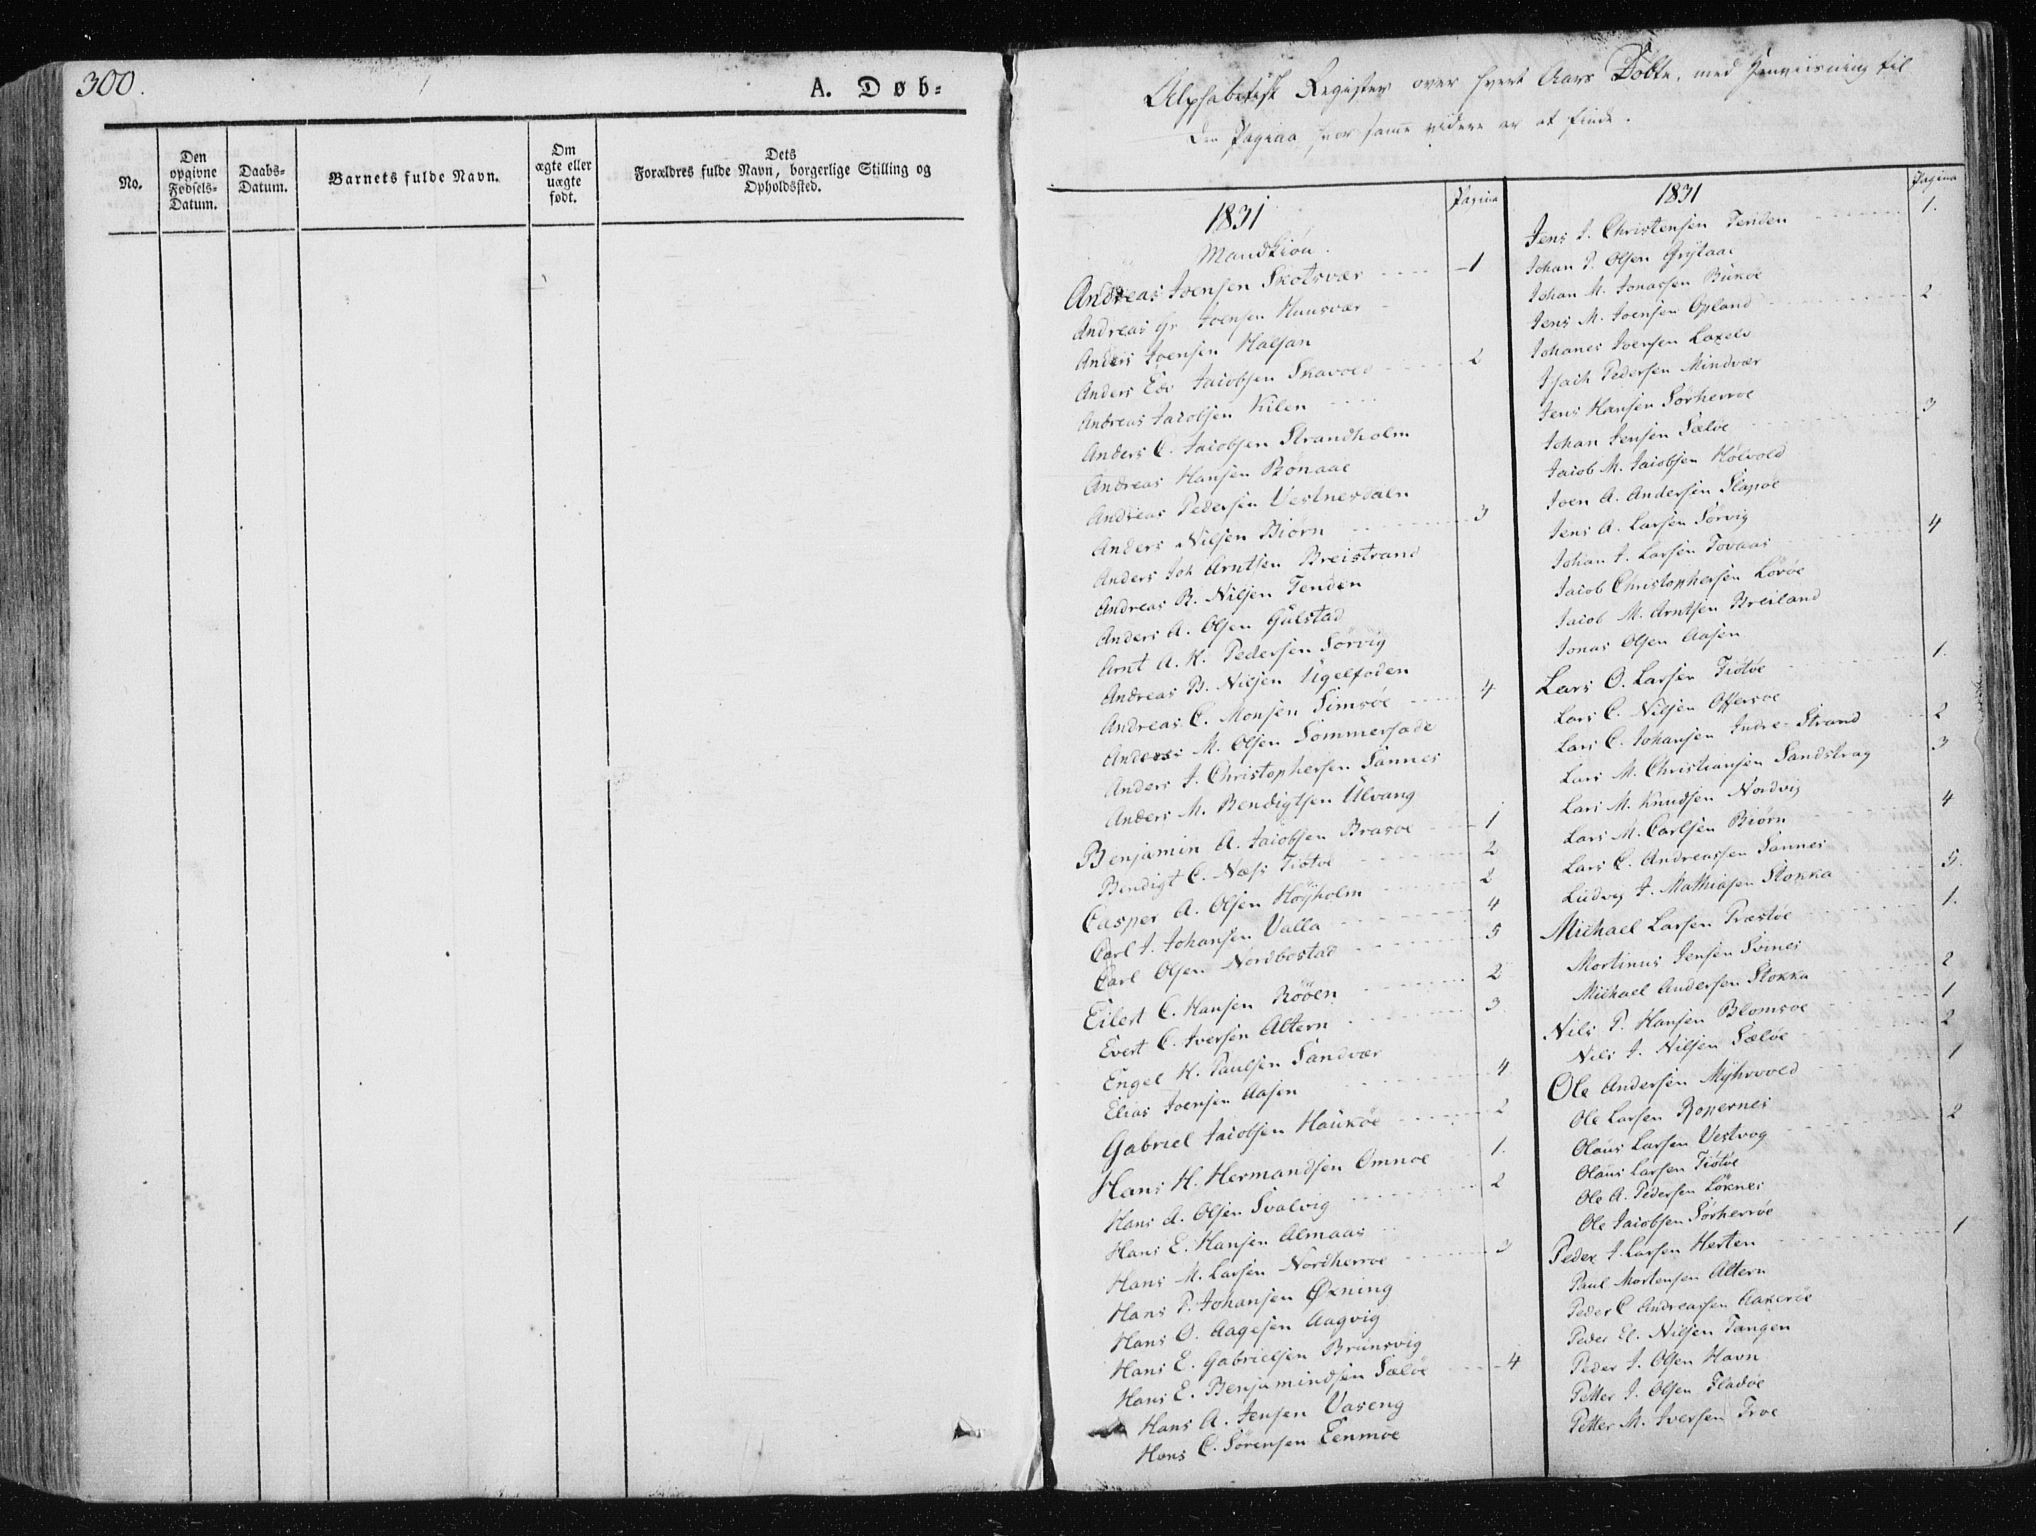 300.
A. Døb-
No.
Den opgivne Fødsels-Datum.
Daabs-Datum.
Barnets fulde Navn.
Om ægte eller uægte født.
Dets Forældres fulde Navn, borgerlige Stilling og Opholdssted.
Alphabetisk Register over hvert Aars Døbte, med Henviisning til
den Pagina hvor samme videre er at finde.
1831 Pagina
Mandkiøn.
Andreas Joensen Skotsvær 1
Andreas Gr Joensen Huusvær
Anders Joensen Halsan
Anders Edv Jacobsen Skavold 2
Andreas Jacobsen Kilen
Anders C. Jacobsen Strandholm
Andreas Hansen Rønaae
Andreas Pedersen Vestnesdaln
Anders Nilsen Biørn 3
Anders Joh Arntsen Breistrand
Andreas B. Nilsen Tenden
Anders A. Olsen Gulstad
Arnt A. H. Pedersen Sørvig
Andreas B. Nilsen Ugelfoden
Andreas C. Monsen Simsøe 4
Anders M. Olsen Sommersæde
Anders J. Christophersen Sannes
Anders M. Bendigtsen Ulvang
Benjamin A. Jacobsen Brasøe 1
Bendigt C. Næss Tiøtøe 2
Casper A. Olsen Høyholm 2
Carl J. Johansen Valla 4
Carl Olsen Nordbostad 5
Eilert C. Hansen Røøen 2
Evert C. Iversen Altern 3
Engel H. Paulsen Sandvær
Elias Joensen Aasen 4
Gabriel Jacobsen Haukøe 2
Hans H. Hermandsen Omnøe 1.
Hans A. Olsen Svalvig 2
Hans E. Hansen Almaas
Hans M. Larsen Nordherrøe 3
Hans P. Johansen Øxning
Hans O. Aagesen Aagvig
Hans E. Gabrielsen Brunsvig
Hans E. Benjamindsen Sæløe 4
Hans A. Jensen Vaseng
Hans C. Sørensen Eenmoe
1831 Pagina
Jens J. Christensen Tenden 1.
Johan P. Olsen Grytaae
Johan M. Jonassen Bukøe
Jens M. Joensen Opland 2
Johanes Joensen Laxelv
Isach Pedersen Mindvær
Jens Hansen Sørherrøe
Johan Jensen Sæløe 3
Jacob M. Jacobsen Høevold
Joen A. Andersen Slapøe
Jens A. Larsen Sørvig
Johan J. Larsen Tovaas 4
Jacob Christophersen Løvøe
Jacob M. Arntsen Breiland
Jonas Olsen Aasen
Lars O. Larsen Tiøtøe 1.
Lars C. Nilsen Offersøe
Lars C. Johansen Indre-Strand 2
Lars M. Christiansen Sandstrag 3
Lars M. Knudsen Nordvig
Lars M. Carlsen Biørn 4
Lars C. Andreassen Sannes
Ludvig J. Mathiasen Stokka 5.
Michael Larsen Præstøe 1.
Mortinus Jensen Svines
Michael Andersen Stokka 2
Nils P. Hansen Blomsøe 1
Nils J. Nilsen Sæløe 2
Ole Andersen Myhrvold 1
Ole Larsen Ropernes
Olaus Larsen Vestvog 2
Olaus Larsen Tiøtøe
Ole A. Pedersen Løknes
Ole Jacobsen Sørherrøe
Peder J. Larsen Herten 1
Paul Mortensen Altern
Peder C Andreassen Aakerøe
El. Nilsen Tangen
Peder J. Olsen Havn
Petter J. Olsen Fladøe
Petter M. Iversen Troe